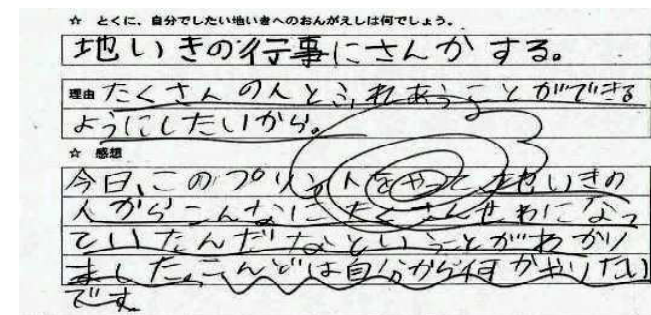 ☆ とくに、自分でしたい地いき者へのおんがえしは何でしょう。
地いきの行事にさんかする。
理由 たくさんの人とふれあうことができる
ようにしたいから。
☆ 感想
今日、このプリントをやって地いきの
人からこんなにたくさんせわになっ
ていたんだなということがわかり
ました。こんどは自分から何かやりたい
です。